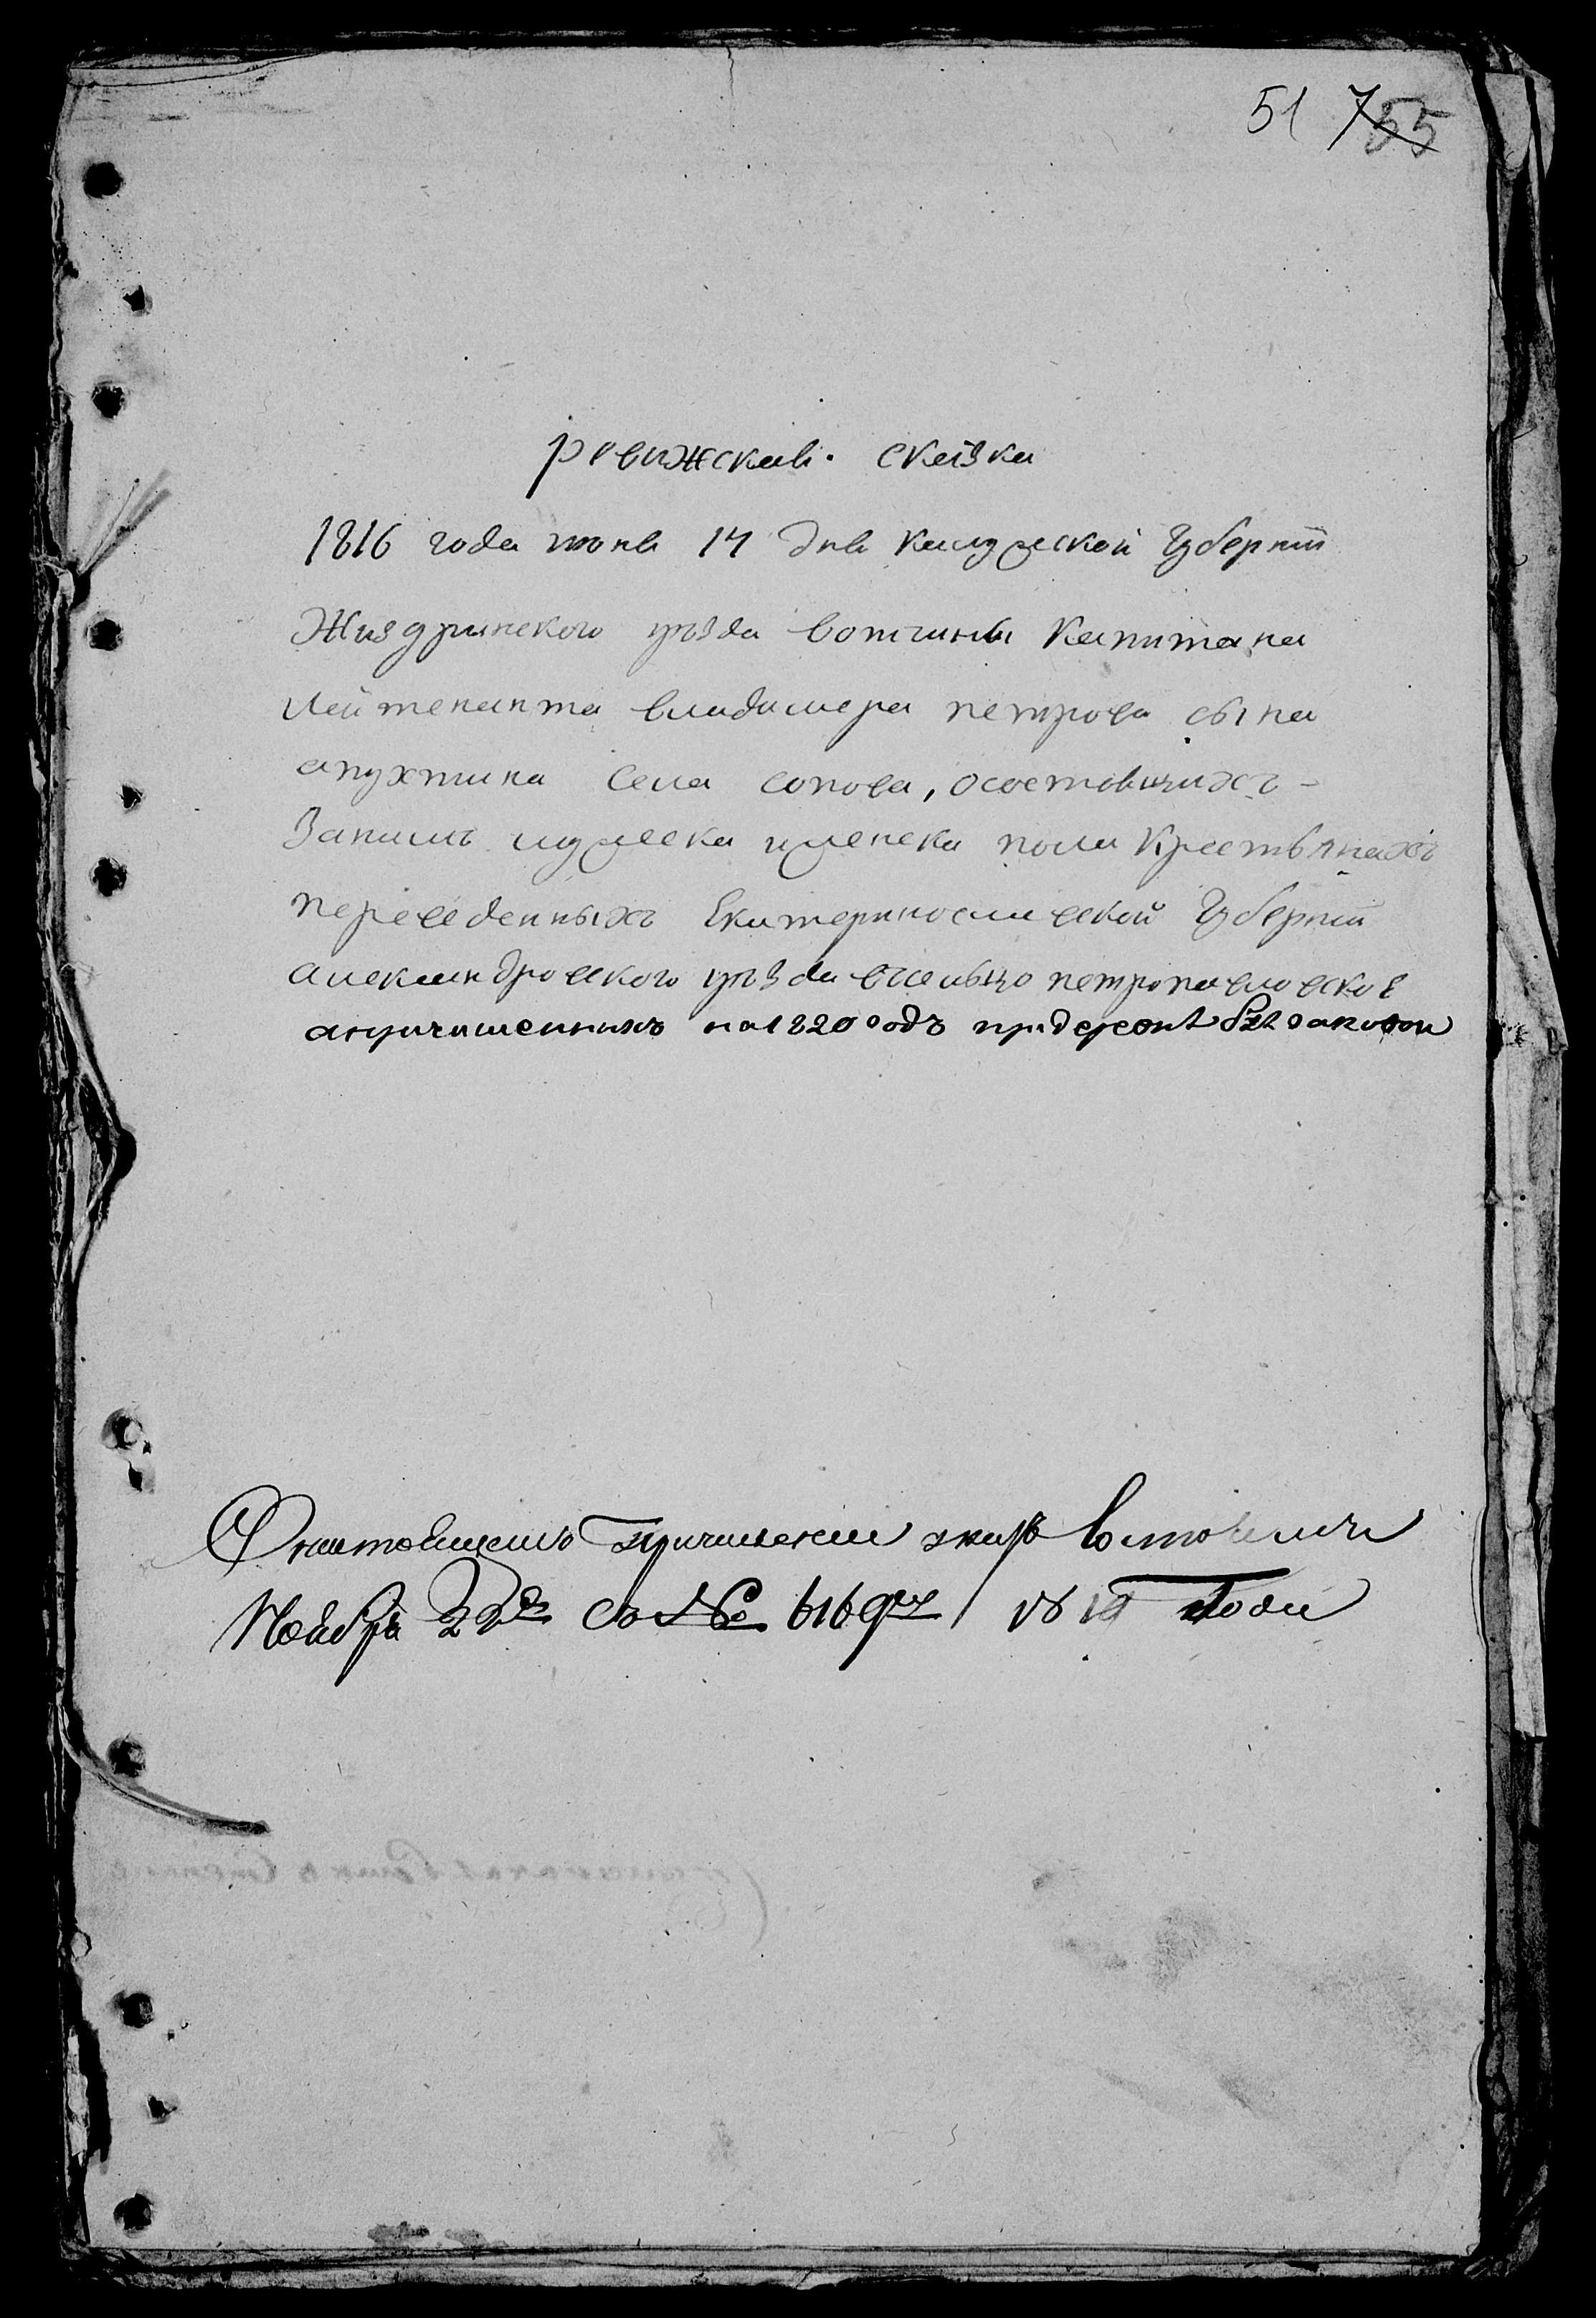 51 755
ревижская. скаска
1816 года июня 14 дня калужской Губернїи
Жиздринского уѣзда вотчины капитана
Лейтенанта владимера петрова сына
апухтина села сопова, осостоящихъ
Занимъ мужеска иженска пола крестьянахъ
переведенныхъ Екатеринославской Губернїи
александровского уѣзда всельцо петропавловское
апричисленныхъ на 1820 годъ
причислении
Ноября 22го Со № 6169мъ 18 Года